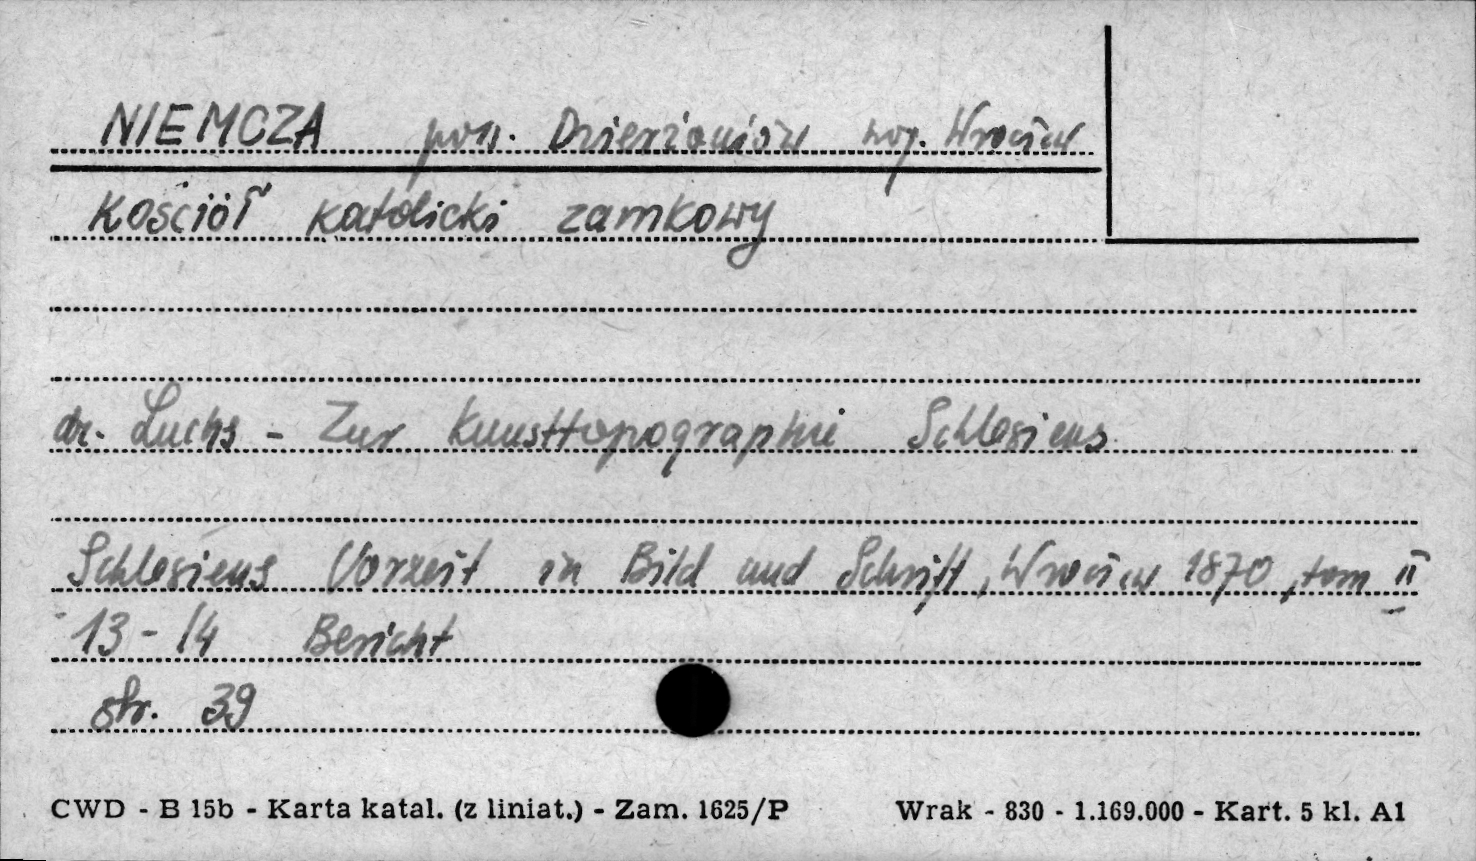 NIEMCZA pow. Dzierżoniów woj. Wrocław
Kościół katolicki zamkowy
dr. Luchs - Zur Kunsttopographie Schlesiens
Schlesiens Vorzeit in Bild und Schrift, Wrocław 1870, tom II
13-14 Bericht
str. 39
CWD - B 15b - Karta katal. (z liniat.) - Zam. 1625/P Wrak - 830 - 1.169.000 - Kart. 5 kl. A1